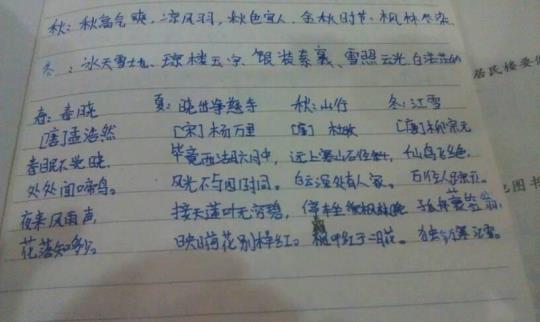 秋:秋高气爽,凉风习习,秋色宜人、金秋时节、枫林尽染
冬:冰天雪地、琼楼玉宇、银装素裹、雪照云光、白茫茫的
春:春晓 夏:晓出净慈寺 秋:山行 冬:江雪
[唐]孟浩然 [宋]杨万里 [唐]杜牧 [唐]柳宗元
春眠不觉晓, 毕竟西湖六月中, 远上寒山石径斜, 千山鸟飞绝,
处处闻啼鸟。 风光不与四时同。 白云深处有人家。 万径人踪灭。
夜来风雨声, 接天莲叶无穷碧, 停车坐爱枫林晚 孤舟蓑笠翁,
花落知多少。 映日荷花别样红。 霜叶红于二月花。 独钓寒江雪。
居民楼要
图书